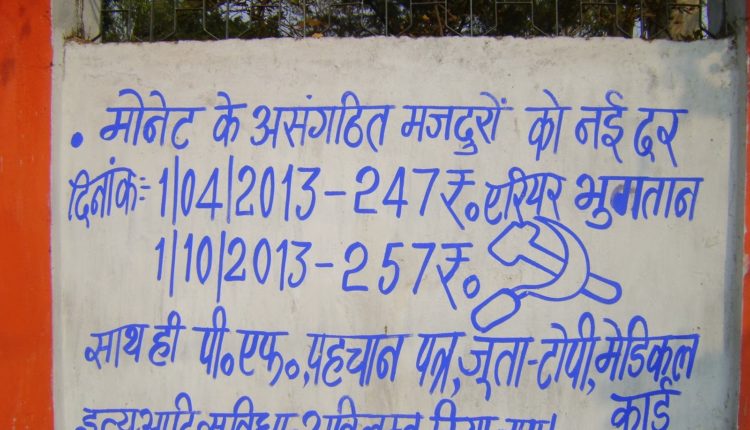 . मोनेट के असंगठित मजदुरों को नई दर
दिनांक:- 1/04/2013 - 247 रु. एरियर भुगतान
1/10/2013 - 257 रु.
साथ ही पी०एफ०, पहचान पत्र, जुता-टोपी, मेडिकल
कार्ड